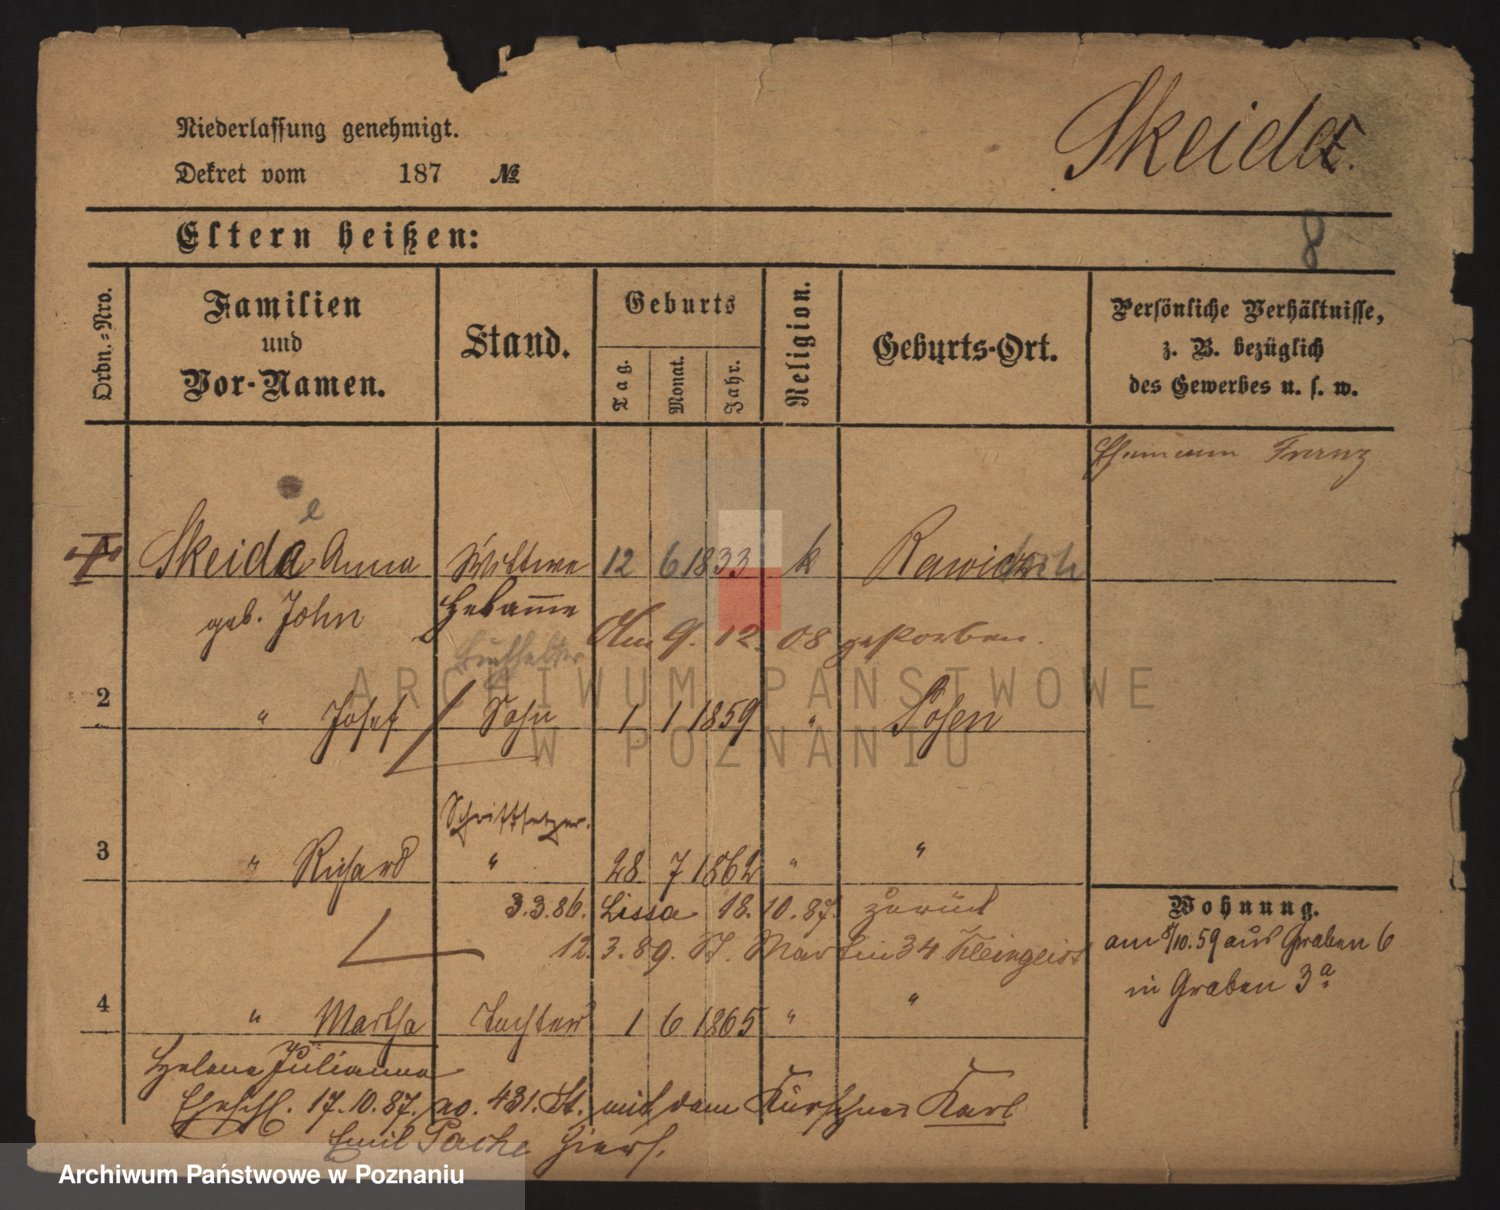 Niederlassung genehmigt.
Dekret vom 187 №
Skeide.
Eltern heißen:
8
Ordn.-Nro.
Familien
und
Vor-Namen.
Stand.
Geburts
Tag.
Monat.
Jahr.
Religion.
Geburts-Ort.
Persönliche Verhältnisse,
z. B. bezüglich
des Gewerbes u. s. w.
Ehemann Franz
e
1 Skeida Anna Wittwe 12 6 1833 k Rawicz
geb. John Hebamme Am 9. 12. 08 gestorben.
2 " Josef Sohn 1 1 1859 " Posen
Schriftsetzer.
3 " Richard " 28 7 1862 " "
3.3.86. Lissa 18.10.87. zurück
12.3.89. St. Martin 34
Wohnung.
am 8/10.59 aus Graben 6
in Graben 3a
4 " Martha Tochter 1 6 1865 " "
Helene Julianna
Eheschl. 17.10.87. no. 431. St. mit dem Kürschner Karl
Emil Pache hiers.
ARCHIWUM PAŃSTWOWE
W POZNANIU
Archiwum Państwowe w Poznaniu